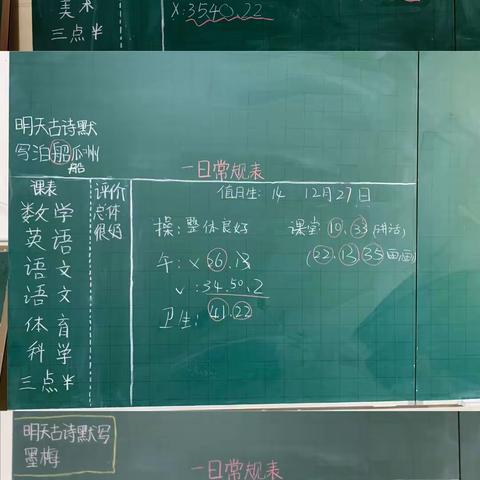 美术
三点半
X:3540.22
明天古诗默
写泊船瓜州
船
一日常规表
值日生: 14 12月27日
课表
数学
英语
语文
语文
体育
科学
三点半
评价
总体
很好
操:整体良好
午:x 36.13
v:34.50.2
卫生:41.22
课堂:19.33(讲话)
(22.13.35画画)
明天古诗默写
墨梅
一日常规表